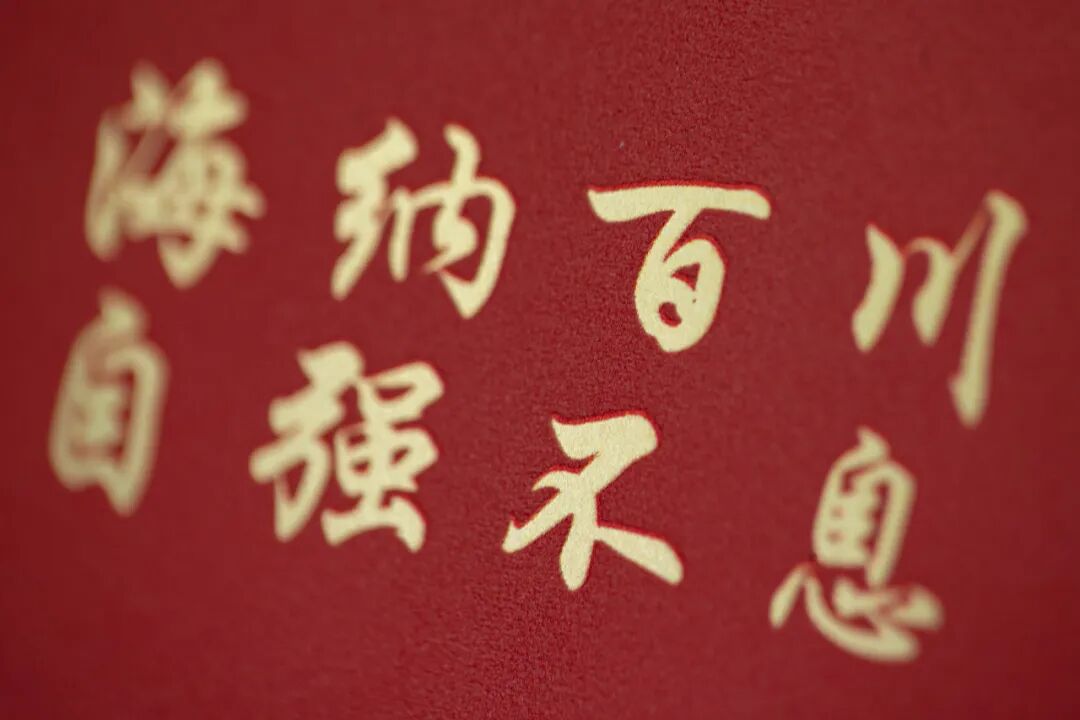 海纳百川
自强不息